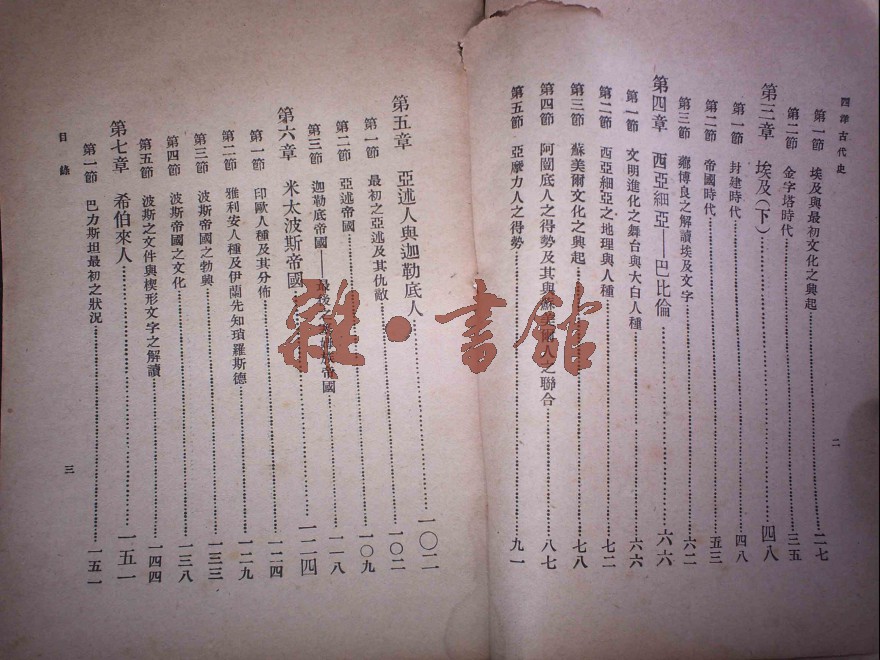 西洋古代史
二
第一節 埃及與最初文化之興起……二七
第二節 金字塔時代……三五
第三章 埃及(下)……四八
第一節 封建時代……四八
第二節 帝國時代……五三
第三節 商博良之解讀埃及文字……六二
第四章 西亞細亞——巴比倫……六六
第一節 文明進化之舞台與大白人種……六六
第二節 西亞細亞之地理與人種……七二
第三節 蘇美爾文化之興起……七八
第四節 阿闥底人之得勢及其與蘇美爾人之聯合……八七
第五節 亞摩力人之得勢……九一
第五章 亞述人與迦勒底人……一〇二
第一節 最初之亞述及其仇敵……一〇二
第二節 亞述帝國……一〇九
第三節 迦勒底帝國——最後之 帝國……一一八
第六章 米太波斯帝國……一二四
第一節 印歐人種及其分佈……一二四
第二節 雅利安人種及伊蘭先知瑣羅斯德……一二九
第三節 波斯帝國之勃興……一三三
第四節 波斯帝國之文化……一三八
第五節 波斯之文件與楔形文字之解讀……一四四
第七章 希伯來人……一五一
第一節 巴力斯坦最初之狀況……一五一
目錄
三
雜·書館